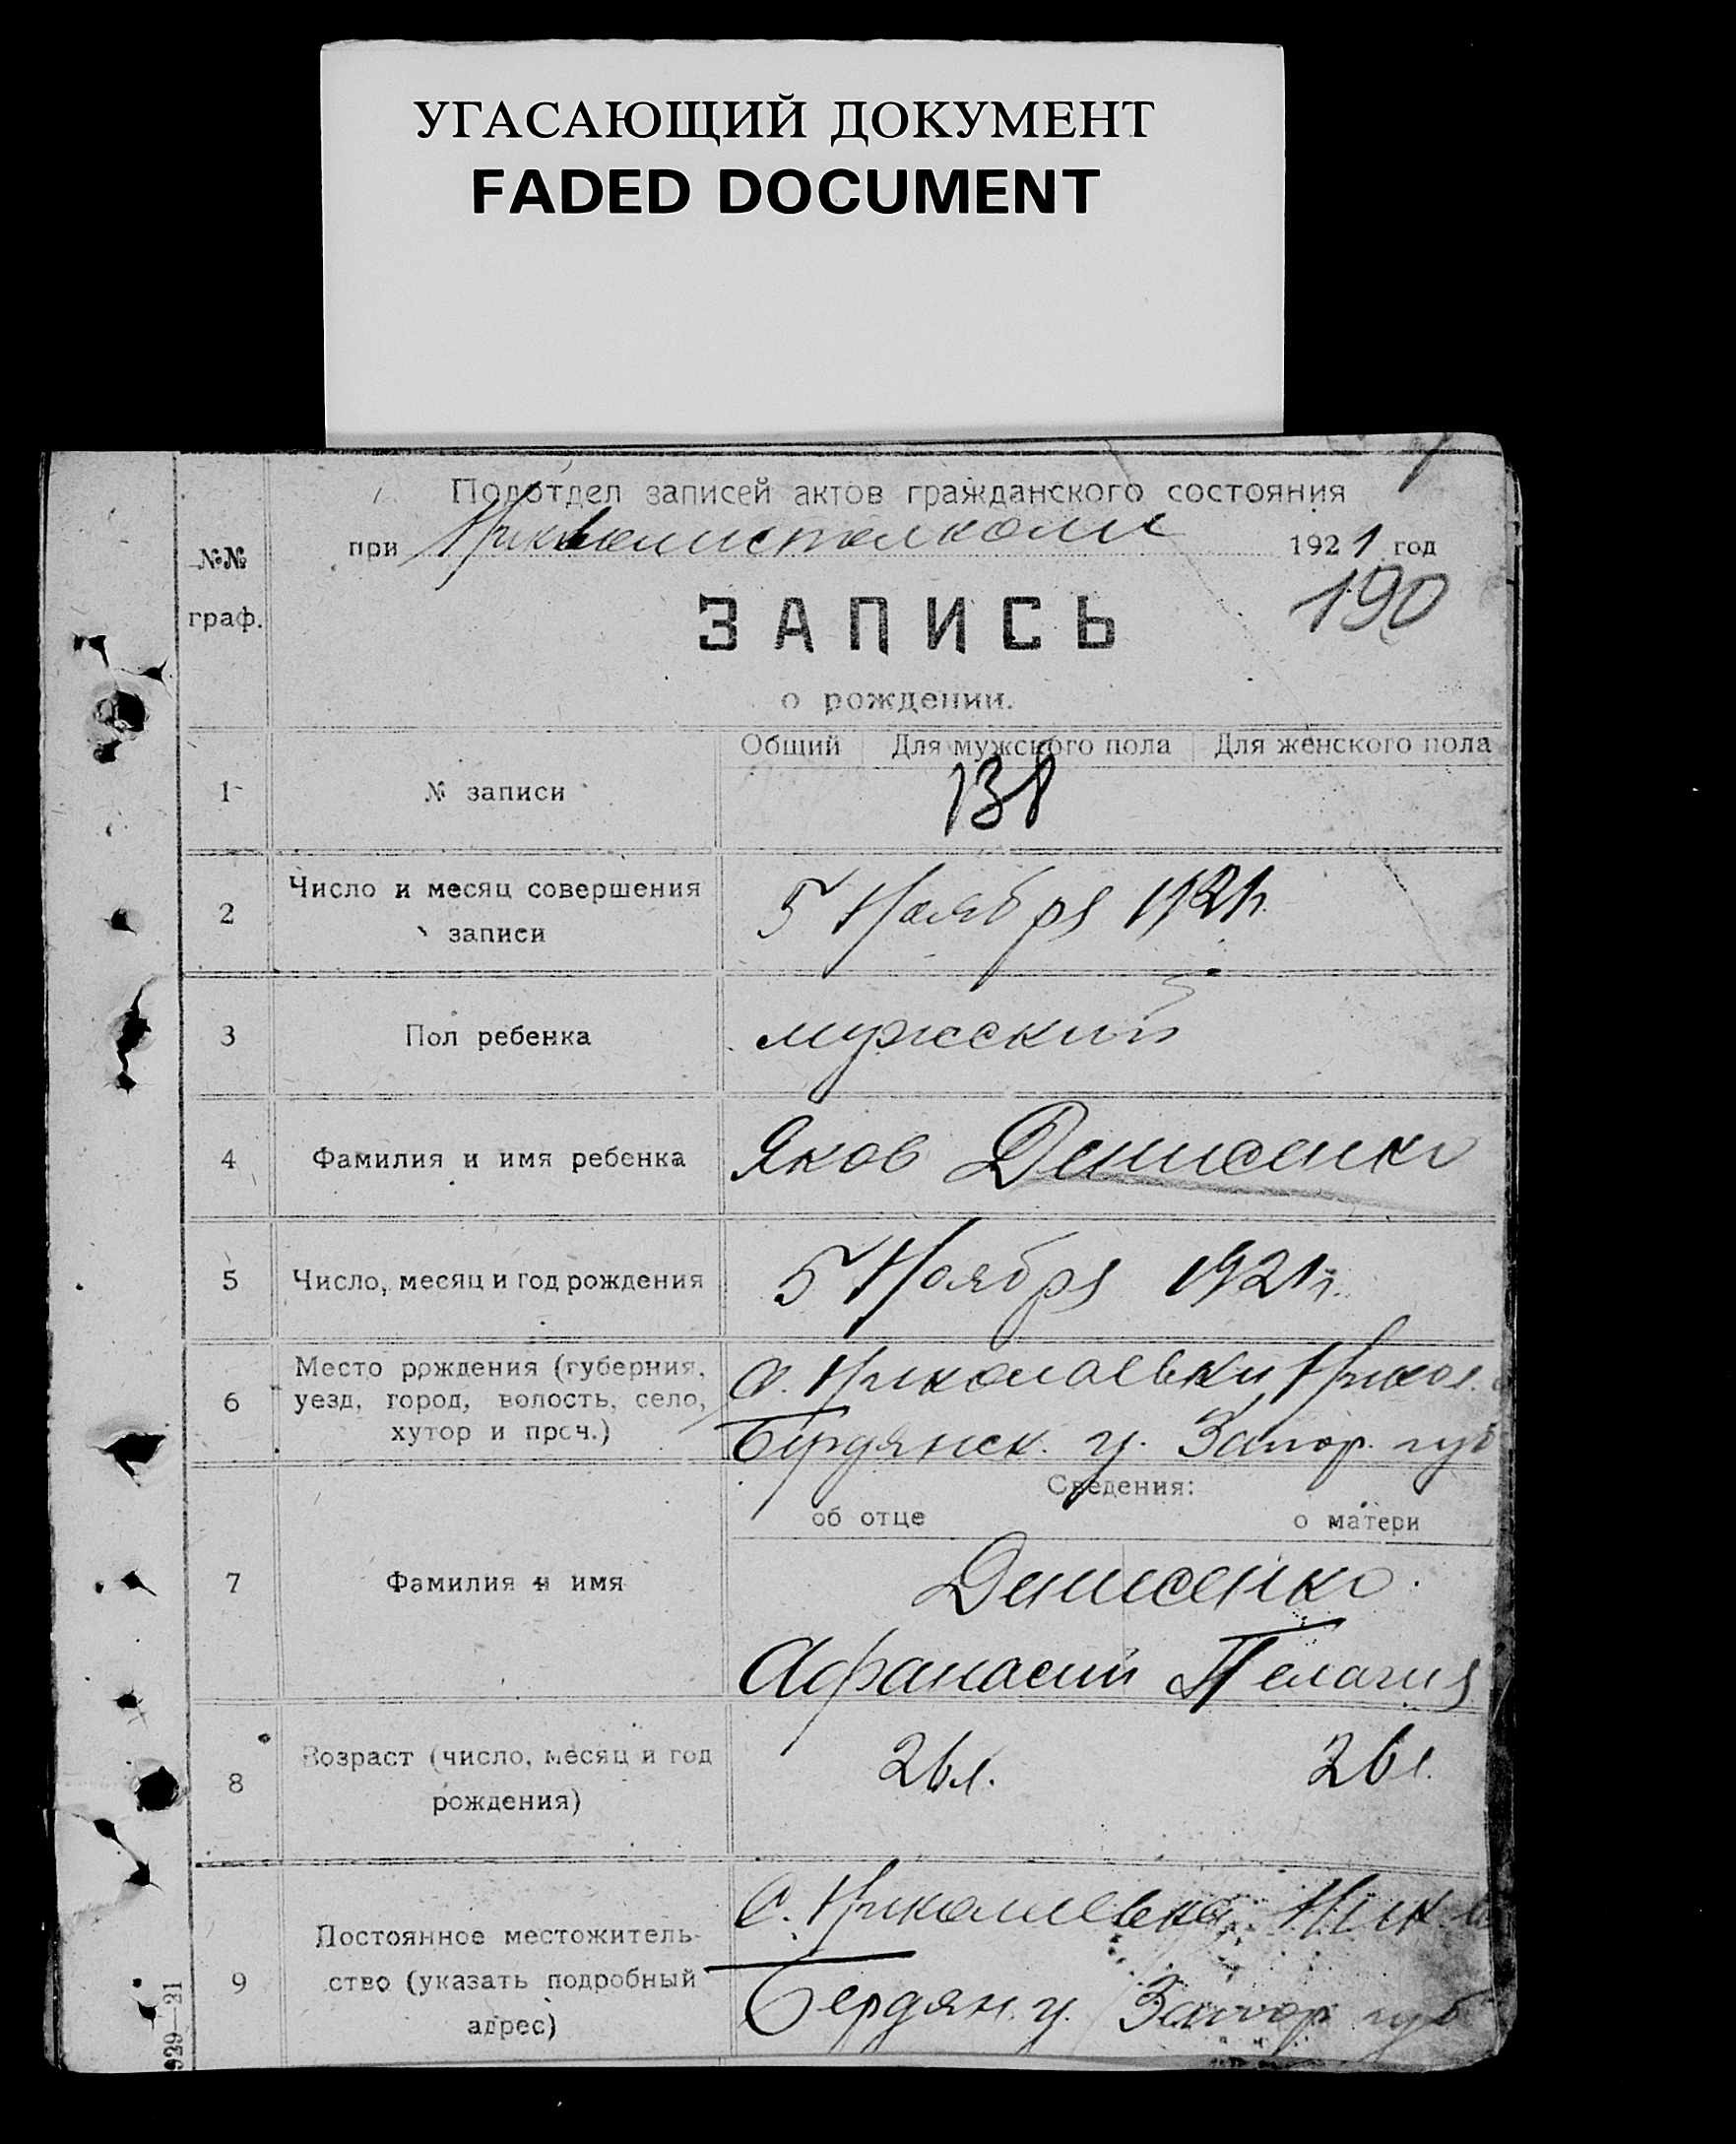 УГАСАЮЩИЙ ДОКУМЕНТ
FADED DOCUMENT
Подотдел записей актов гражданского состояния
при 1921 год
№№
граф.
190
ЗАПИСЬ
о рождении.
Общий Для мужского пола Для женского пола
1 № записи 138
2 Число и месяц совершения
записи
5 Ноября 1921г.
3 Пол ребенка мужеский
4 Фамилия и имя ребенка Яков Денисенко
5 Число, месяц и год рождения 5 Ноября 1921г.
6 Место рождения (губерния,
уезд, город, волость, село,
хутор и проч.)
с. Николаевки, Никол.
Бердянск. у. Запор. губ
Сведения:
об отце о матери
7 Фамилия и имя
Денисенко
Афанасий Пелагия
8 Возраст (число, месяц и год
рождения)
26л. 26л.
9 Постоянное местожитель-
ство (указать подробный
адрес)
С. Николаевка Ник.
Бердян. у. Запор губ
929—21